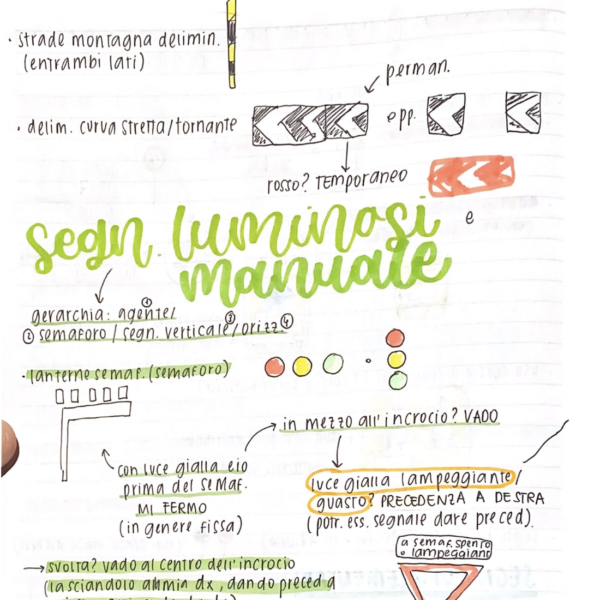 · strade montagna delimin.
(entrambi lati)
perman.
· delim. curva stretta/tornante
opp.
rosso? TEMPORANEO
segn. luminosi e
manuale
gerarchia: agente ① /
② semaforo / segn. verticale ③ / orizz ④
· lanterne semaf. (semaforo)
in mezzo all'incrocio? VADO
con luce gialla e io
prima del semaf.
MI FERMO
(in genere fissa)
luce gialla lampeggiante/
guasto? PRECEDENZA A DESTRA
(potr. ess. segnale dare preced).
a semaf. spento
o lampeggiante
→ svolta? vado al centro dell'incrocio
(lasciandolo alla mia dx, dando preced a